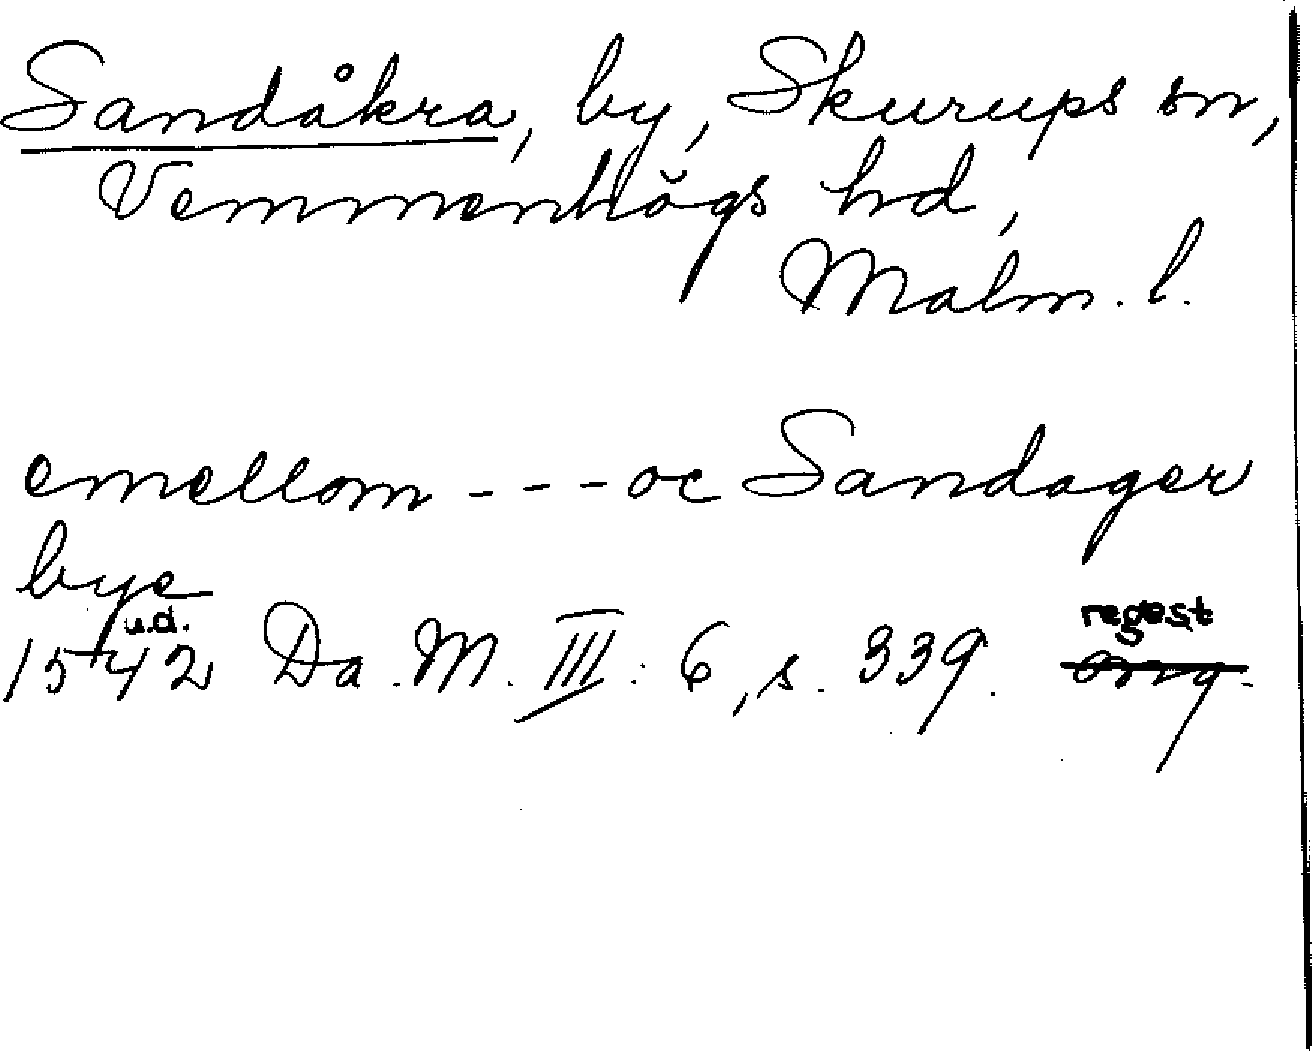 Sandåkra, by, Skurups sn,
Vemmenhögs hd,
Malm. l.
emellom - - - oc Sandager
bye
u.d. regest
1542 Da. M. III: 6, s. 339. orig.